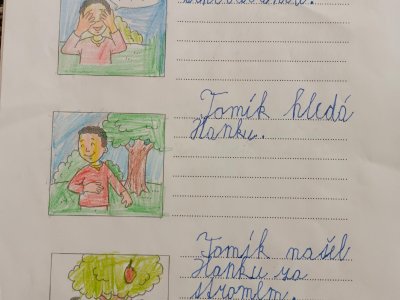 Tomík hledá
Hanku.
Tomík našel
Hanku za
stromem.